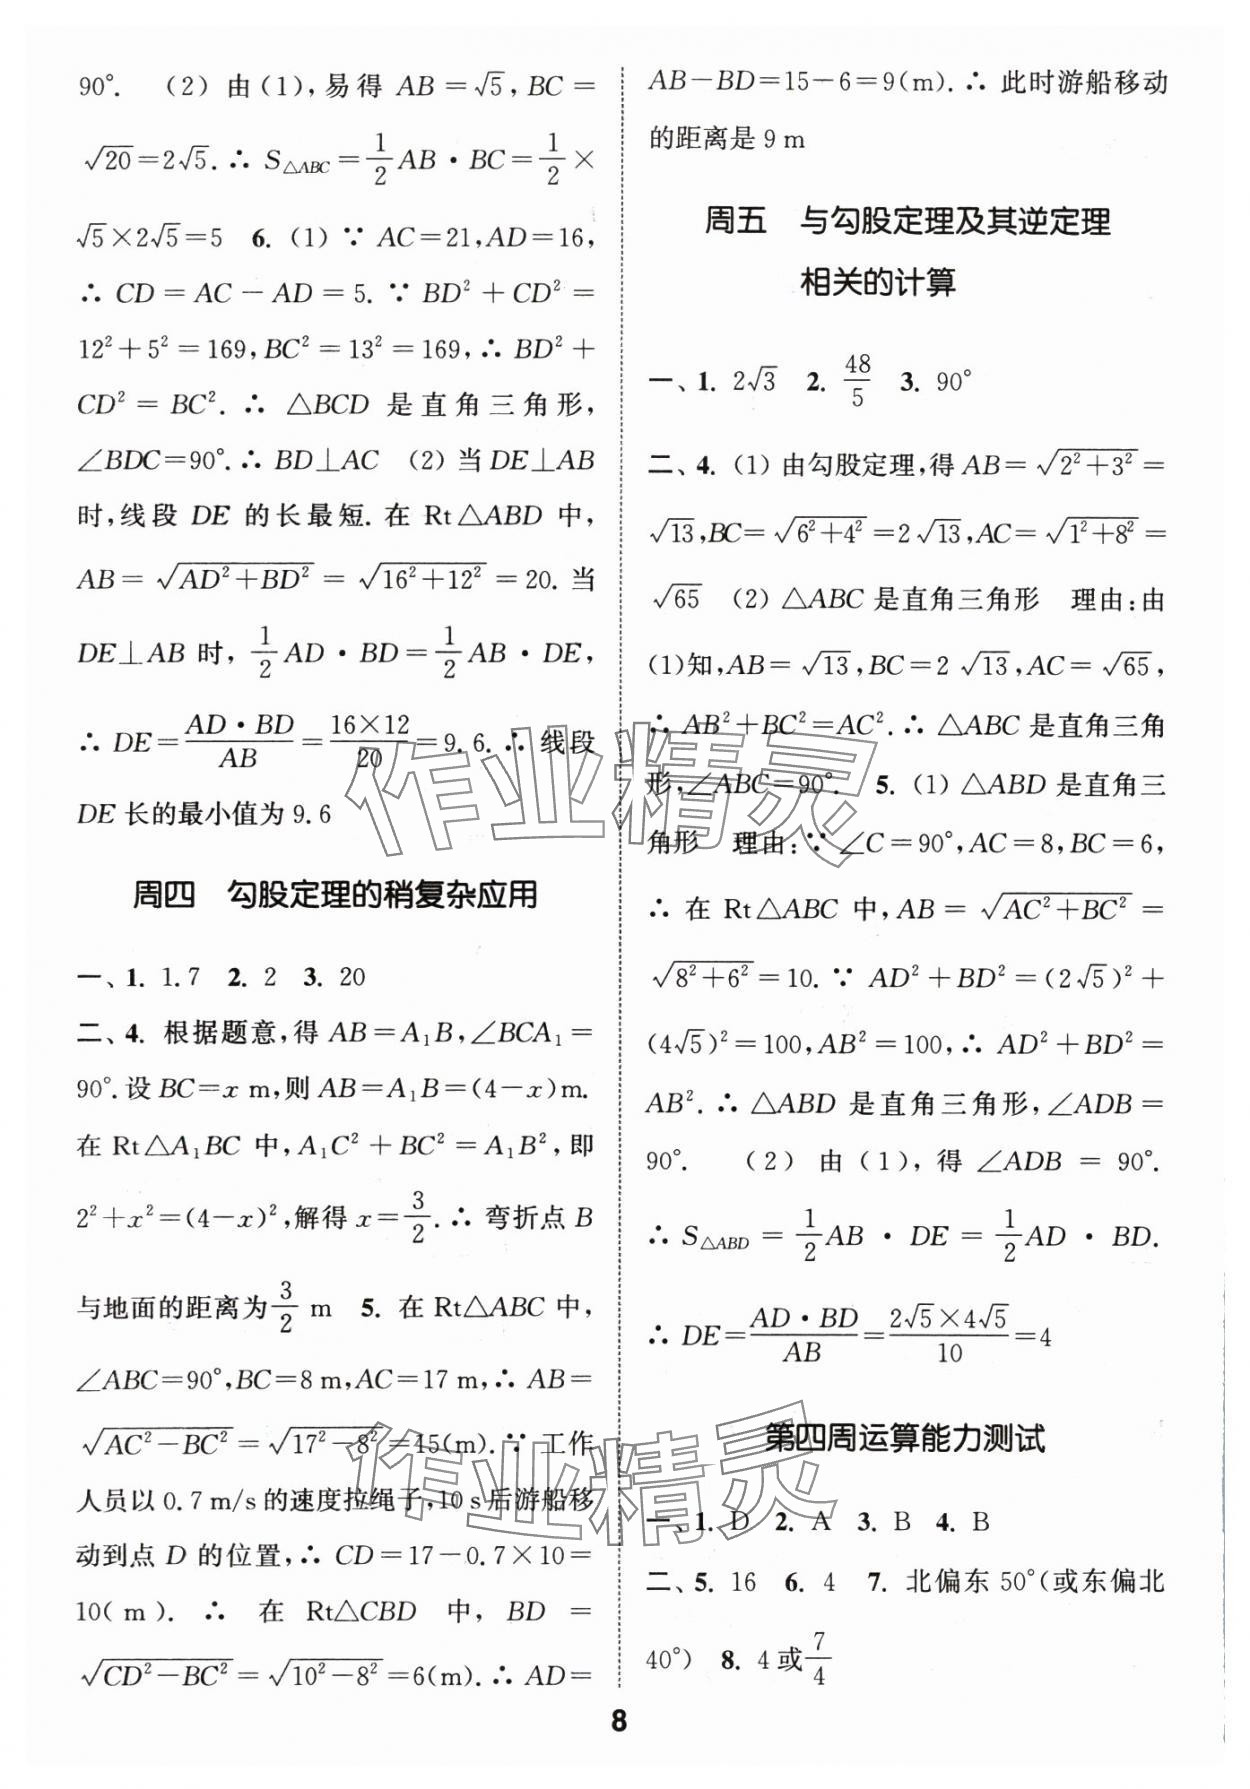 90°. (2) 由(1),易得 AB=√5,BC=
√20=2√5.∴ S△ABC=1/2AB·BC=1/2×
√5×2√5=5 6. (1) ∵ AC=21,AD=16,
∴ CD=AC-AD=5. ∵ BD²+CD²=
12²+5²=169,BC²=13²=169,∴ BD²+
CD²=BC².∴ △BCD 是直角三角形,
∠BDC=90°.∴ BD⊥AC (2) 当 DE⊥AB
时,线段 DE 的长最短. 在 Rt△ABD 中,
AB=√(AD²+BD²)=√(16²+12²)=20. 当
DE⊥AB 时,1/2AD·BD=1/2AB·DE,
∴ DE=(AD·BD)/AB=(16×12)/20=9.6.∴ 线段
DE 长的最小值为 9.6
周四 勾股定理的稍复杂应用
一、1. 1.7 2. 2 3. 20
二、4. 根据题意,得 AB=A₁B,∠BCA₁=
90°.设 BC=x m,则 AB=A₁B=(4-x)m.
在 Rt△A₁BC 中,A₁C²+BC²=A₁B²,即
2²+x²=(4-x)²,解得 x=3/2.∴ 弯折点 B
与地面的距离为3/2 m 5. 在 Rt△ABC 中,
∠ABC=90°,BC=8 m,AC=17 m,∴ AB=
√(AC²-BC²)=√(17²-8²)=15(m).∵ 工作
人员以 0.7 m/s 的速度拉绳子,10 s 后游船移
动到点 D 的位置,∴ CD=17-0.7×10=
10(m). ∴ 在 Rt△CBD 中,BD=
√(CD²-BC²)=√(10²-8²)=6(m).∴ AD=
AB-BD=15-6=9(m).∴ 此时游船移动
的距离是 9 m
周五 与勾股定理及其逆定理
相关的计算
一、1. 2√3 2. 48/5 3. 90°
二、4. (1) 由勾股定理,得 AB=√(2²+3²)=
√13,BC=√(6²+4²)=2√13,AC=√(1²+8²)=
√65 (2) △ABC 是直角三角形 理由:由
(1)知,AB=√13,BC=2√13,AC=√65,
∴ AB²+BC²=AC².∴ △ABC 是直角三角
形,∠ABC=90°. 5. (1) △ABD 是直角三
角形 理由:∵ ∠C=90°,AC=8,BC=6,
∴ 在 Rt△ABC 中,AB=√(AC²+BC²)=
√(8²+6²)=10.∵ AD²+BD²=(2√5)²+
(4√5)²=100,AB²=100,∴ AD²+BD²=
AB².∴ △ABD 是直角三角形,∠ADB=
90°. (2) 由(1),得 ∠ADB=90°.
∴ S△ABD=1/2AB·DE=1/2AD·BD.
∴ DE=(AD·BD)/AB=(2√5×4√5)/10=4
第四周运算能力测试
一、1. D 2. A 3. B 4. B
二、5. 16 6. 4 7. 北偏东 50°(或东偏北
40°) 8. 4或7/4
8
作业精灵
作业精灵